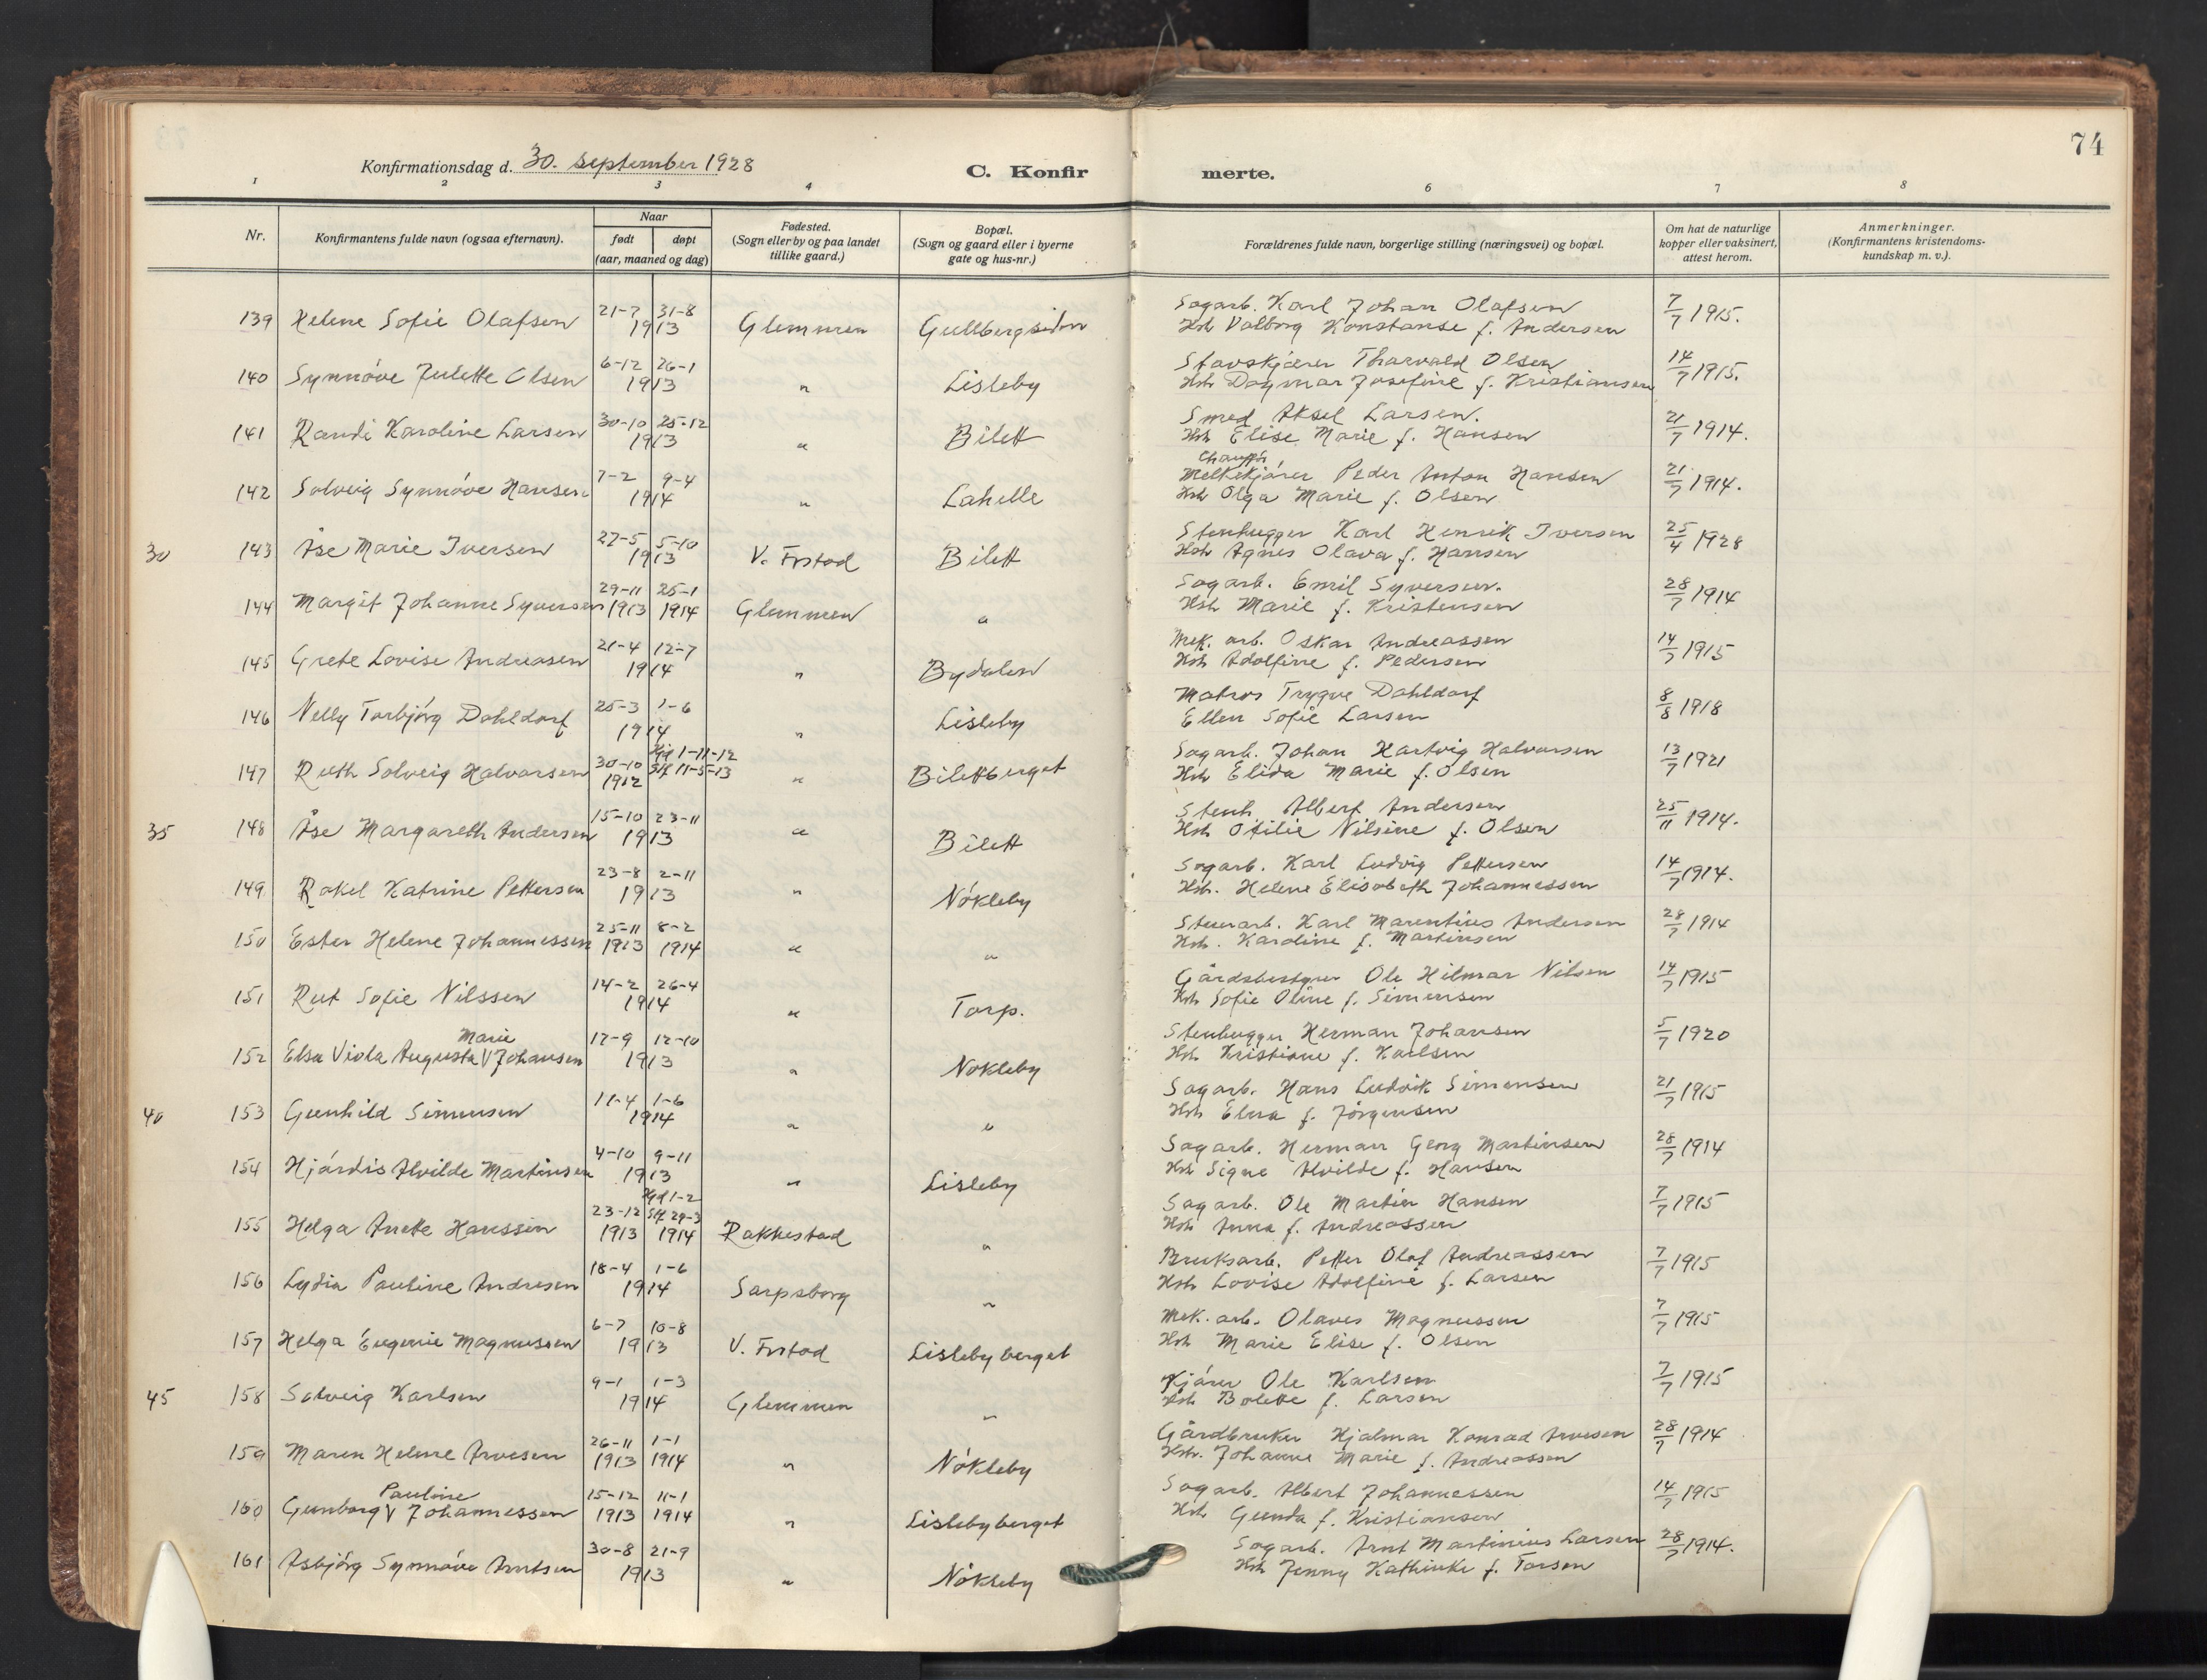 74
Konfirmationsdag d. 30. September 1928
C. Konfirmerte.
1 2 3 4 6 7 8
Nr.
Konfirmantens fulde navn (ogsaa efternavn).
Naar
født døpt
(aar, maaned og dag)
Fødested.
(Sogn eller by og paa landet
tillike gaard.)
Bopæl.
(Sogn og gaard eller i byerne
gate og hus-nr.)
Forældrenes fulde navn, borgerlige stilling (næringsvei) og bopæl.
Om hat de naturlige
kopper eller vaksinert,
attest herom.
Anmerkninger.
(Konfirmantens kristendoms-
kundskap m. v.).
21-7 31-8 Sagarb. Karl Johan Olafsen
139 Helene Sofie Olafsen 1913 Glemmen Gullbergsiden Hst Valborg Konstanse f. Andersen 7/7 1915.
6-12 26-1 Stavskjærer Tharvald Olsen
140 Synnóve Julette Olsen 1913 " Lisleby Hst Dagmar Josefine f. Kristiansen 14/7 1915.
30-10 25-12 Smed Aksel Larsen.
141 Randi Karoline Larsen 1913 " Bilett Hst Elise Marie f. Hansen 21/7 1914.
Chauffór
7-2 9-4 Melkekjórer Peder Anton Hansen
142 Solveig Synnóve Hansen 1914 " Lahelle Hst Olga Marie f. Olsen 21/7 1914.
27-5 5-10 Stenhugger Karl Henrik Iversen
30 143 Åse Marie Iversen 1913 V. Frstad Bilett Hst Agnes Olava f. Hansen 25/4 1928
29-11 25-1 Sagarb. Emil Syversen.
144 Margit Johanne Syversen 1913 1914 Glemmen " Hst Marie f. Kristensen 28/7 1914
21-4 12-7 Mek. arb. Oskar Andreassen
145 Grete Lovise Andreasen 1914 " Bydalen Hst Adolfine f. Pedersen 14/7 1915
25-3 1-6 Matros Trygve Dahldorf
146 Nelly Torbjórg Dahldorf 1914 " Lisleby Ellen Sofie Larsen 8/8 1918
Hjd 1-11-12
30-10 Stf 11-5-13 Sagarb. Johan Hartvig Halvorsen
147 Ruth Solveig Halvorsen 1912 " Bilettberget Hst Elida Marie f. Olsen 13/7 1921
15-10 23-11 Stenh. Albert Andersen
35 148 Åse Margareth Andersen 1913 " Bilett Hst Otilie Nilsine f. Olsen 25/11 1914.
23-8 2-11 Sagarb. Karl Ludvig Pettersen
149 Rakel Katrine Pettersen 1913 " Nókleby Hst. Helene Elisabeth Johannessen 14/7 1914.
25-11 8-2 Stuerarb. Karl Marentius Andersen
150 Ester Helene Johannessen 1913 1914 " " Hst. Karoline f. Martinsen 28/7 1914
14-2 26-4 Gårdsbestyrer Ole Hilmar Nilsen
151 Rut Sofie Nilssen 1914 " Torp. Hst Sofie Oline f. Simensen 14/7 1915
Marie 12-9 12-10 Stenhugger Herman Johansen
152 Elsa Viola Augusta V Johansen 1913 " Nokleby Hst Kristiane f. Karlsen 5/7 1920
11-4 1-6 Sagarb. Hans Ludvik Simensen
40 153 Gunhild Simensen 1914 " " Hst Elna f. Jórgensen 21/7 1915
4-10 9-11 Sagarb. Herman Georg Martinsen
154 Hjórdis Alvilde Martinsen 1913 " Lisleby Hst Signe Alvilde f. Hansen 28/7 1914
Hjd 1-2
23-12 Stf 29-3 Sagarb. Ole Martin Hansen
155 Helga Anette Hanssen 1913 1914 Rakkestad " Hst Anna f. Andreassen 7/7 1915
18-4 1-6 Bruksarb. Petter Olaf Andreassen
156 Lydia Pauline Andresen 1914 Sarpsborg " Hst Lovise Adolfine f. Larsen 7/7 1915
6-7 10-8 Mek. arb. Olaves Magnussen
157 Helga Eugenie Magnussen 1913 V. Frstad Lislebyberget Hst Marie Elise f. Olsen 7/7 1915
9-1 1-3 Kjórer Ole Karlsen
45 158 Solveig Karlsen 1914 Glemmen " Hst Bolette f. Larsen 7/7 1915
26-11 1-1 Gårdbruker Hjalmar Konrad Arvesen
159 Maren Helene Arvesen 1913 1914 " Nókleby Hst. Johanne Marie f. Andreassen 28/7 1914
Pauline 15-12 11-1 Sagarb. Albert Johannessen
160 Gunborg V Johannessen 1913 1914 " Lislebyberget Hst Gunda f. Kristiansen 14/7 1915
30-8 21-9 Sagarb. Arnt Martinius Larsen
161 Asbjórg Synnóve Arntsen 1913 " Nókleby Hst Jenny Kathinke f. Torsen 28/7 1914.